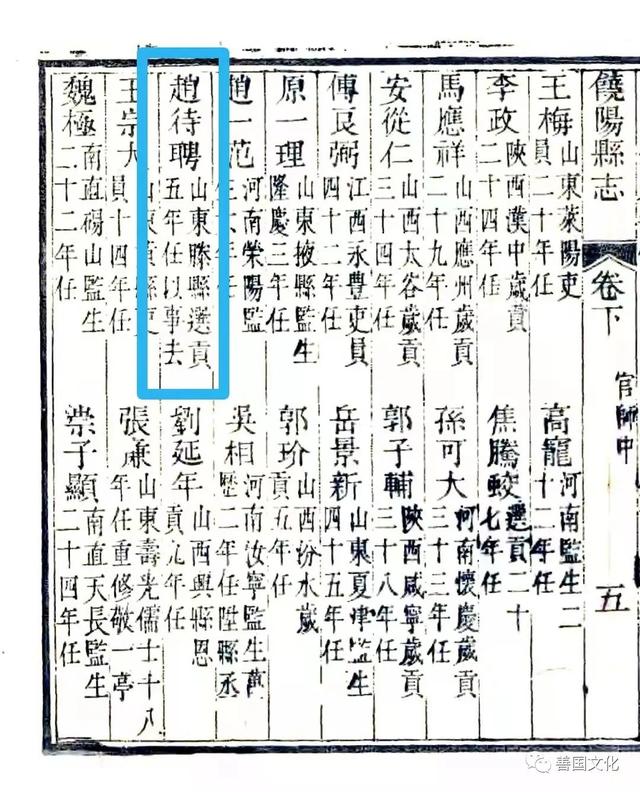 饒陽縣志 卷下 官師中 五
王梅 山東萊陽吏員二十年任 高寵 河南監生二十二年任
李政 陝西漢中歲貢二十四年任 焦騰蛟 選貢二十七年任
馬應祥 山西應州歲貢二十九年任 孫可大 河南懷慶歲貢三十三年任
安從仁 山西太谷歲貢三十四年任 郭子輔 陝西咸寧歲貢三十八年任
傅良弼 江西永豐吏員四十二年任 岳景新 山東夏津監生四十五年任
原一理 山東掖縣監生隆慶三年任 郭玠 山西汾水歲貢五年任
趙一范 河南榮陽監生六年任 吳相 河南汝寧監生萬歷二年任陞縣丞
趙待聘 山東滕縣選貢五年任以事去 劉延年 山西興縣恩貢九年任
王宗大 山東黃縣吏員十四年任 張兼 山東壽光儒士十八年任重修敬一亭
魏極 南直碭山監生二十二年任 子顯 南直天長監生二十四年任
善国文化